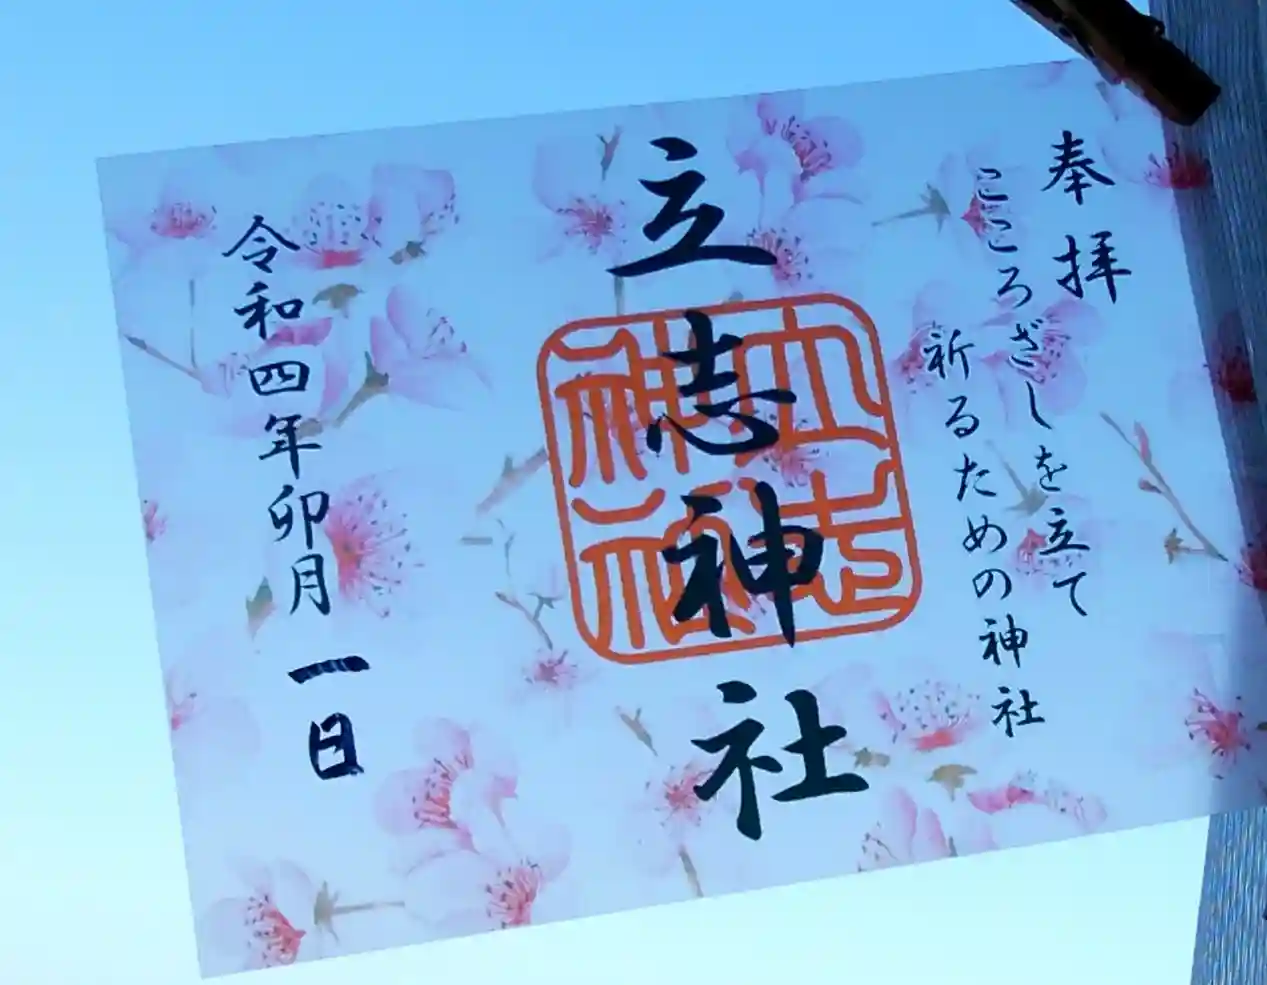 奉拝
こころざしを立て
祈るための神社
立志神社
令和四年卯月一日